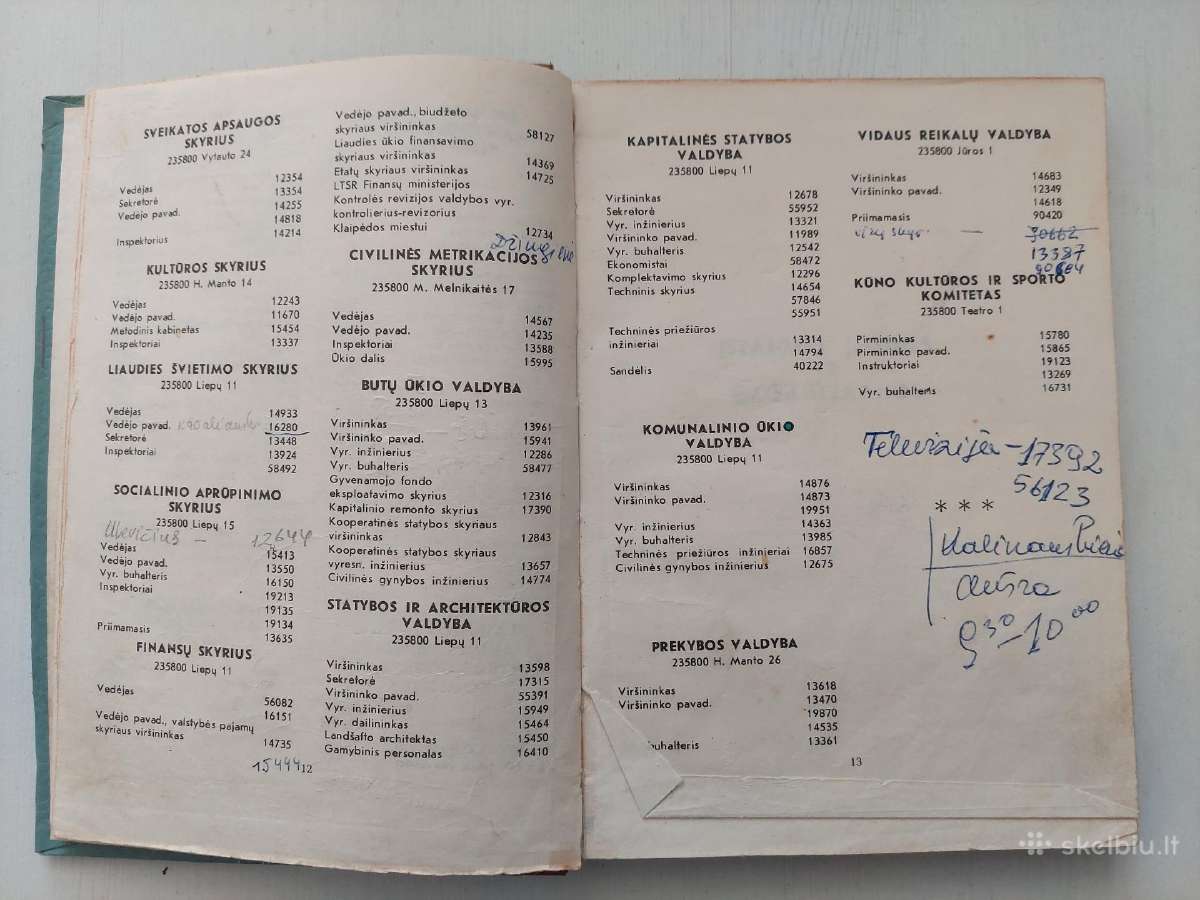 SVEIKATOS APSAUGOS
SKYRIUS
235800 Vytauto 24
12354
Vedėjas 13354
Sekretorė 14255
Vedėjo pavad. 14818
Inspektorius 14214
KULTŪROS SKYRIUS
235800 H. Manto 14
Vedėjas 12243
Vedėjo pavad. 11670
Metodinis kabinetas 15454
Inspektoriai 13337
LIAUDIES ŠVIETIMO SKYRIUS
235800 Liepų 11
Vedėjas 14933
Vedėjo pavad. 16280
Sekretorė 13448
Inspektoriai 13924
58492
SOCIALINIO APRŪPINIMO
SKYRIUS
235800 Liepų 15
12644
Vedėjas 15413
Vedėjo pavad. 13550
Vyr. buhalteris 16150
Inspektoriai 19213
19135
19134
Priimamasis 13635
FINANSŲ SKYRIUS
235800 Liepų 11
Vedėjas 56082
Vedėjo pavad., valstybės pajamų 16151
skyriaus viršininkas 14735
15444
12
Vedėjo pavad., biudžeto
skyriaus viršininkas 58127
Liaudies ūkio finansavimo
skyriaus viršininkas 14369
Etatų skyriaus viršininkas 14725
LTSR Finansų ministerijos
Kontrolės revizijos valdybos vyr.
kontrolierius-revizorius
Klaipėdos miestui 12734
CIVILINĖS METRIKACIJOS
SKYRIUS
235800 M. Melnikaitės 17
Vedėjas 14567
Vedėjo pavad. 14235
Inspektoriai 13588
Ūkio dalis 15995
BUTŲ ŪKIO VALDYBA
235800 Liepų 13
Viršininkas 13961
Viršininko pavad. 15941
Vyr. inžinierius 12286
Vyr. buhalteris 58477
Gyvenamojo fondo
eksploatavimo skyrius 12316
Kapitalinio remonto skyrius 17390
Kooperatinės statybos skyriaus
viršininkas 12843
Kooperatinės statybos skyriaus
vyresn. inžinierius 13657
Civilinės gynybos inžinierius 14774
STATYBOS IR ARCHITEKTŪROS
VALDYBA
235800 Liepų 11
Viršininkas 13598
Sekretorė 17315
Viršininko pavad. 55391
Vyr. inžinierius 15949
Vyr. dailininkas 15464
Landšafto architektas 15450
Gamybinis personalas 16410
KAPITALINĖS STATYBOS
VALDYBA
235800 Liepų 11
Viršininkas 12678
Sekretorė 55952
Vyr. inžinierius 13321
Viršininko pavad. 11989
Vyr. buhalteris 12542
Ekonomistai 58472
Komplektavimo skyrius 12296
Techninis skyrius 14654
57846
55951
Techninės priežiūros
inžinieriai 13314
14794
Sandėlis 40222
KOMUNALINIO ŪKIO
VALDYBA
235800 Liepų 11
Viršininkas 14876
Viršininko pavad. 14873
19951
Vyr. inžinierius 14363
Vyr. buhalteris 13985
Techninės priežiūros inžinieriai 16857
Civilinės gynybos inžinierius 12675
PREKYBOS VALDYBA
235800 H. Manto 26
Viršininkas 13618
Viršininko pavad. 13470
19870
14535
buhalteris 13361
13
VIDAUS REIKALŲ VALDYBA
235800 Jūros 1
Viršininkas 14683
Viršininko pavad. 12349
14618
Priimamasis 90420
30662
13387
KŪNO KULTŪROS IR SPORTO
KOMITETAS
235800 Teatro 1
Pirmininkas 15780
Pirmininko pavad. 15865
Instruktoriai 19123
13269
Vyr. buhalteris 16731
Televizija - 17392
56123
* * *
Aušra
9 30 - 10 00
skelbiu.lt